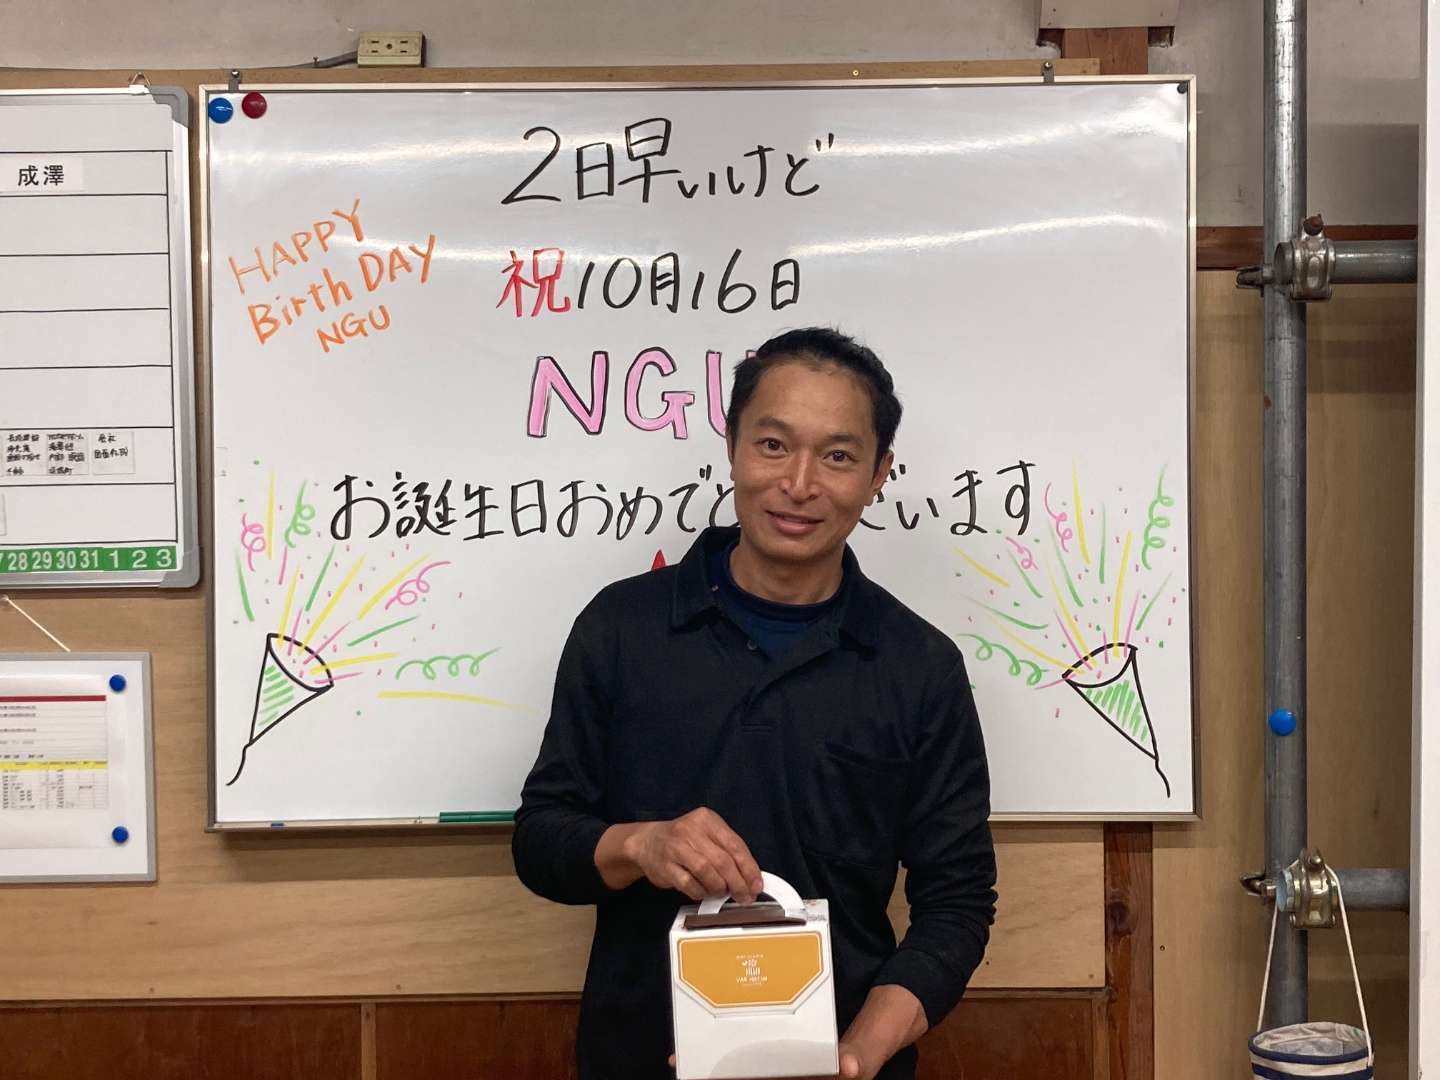 2日早いけど
HAPPY
Birth DAY
NGU
祝10月16日
NGU
お誕生日おめでと ございます
成澤
28 29 30 31 1 2 3